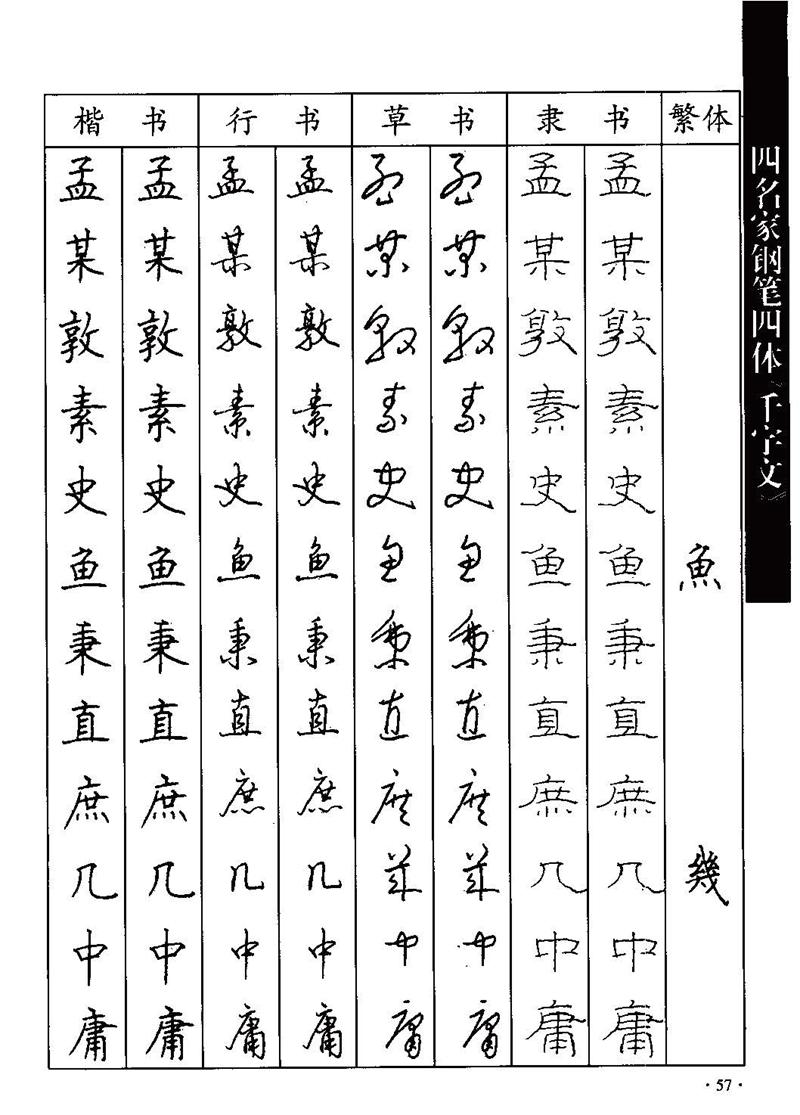 楷书 行书 草书 隶书 繁体
孟 孟 孟 孟 孟 孟 孟 孟
某 某 某 某 某 某 某 某
敦 敦 敦 敦 敦 敦 敦 敦
素 素 素 素 素 素 素 素
史 史 史 史 史 史 史 史
鱼 鱼 鱼 鱼 鱼 鱼 鱼 鱼 魚
秉 秉 秉 秉 秉 秉 秉 秉
直 直 直 直 直 直 直 直
庶 庶 庶 庶 庶 庶 庶 庶
几 几 几 几 几 几 几 几 幾
中 中 中 中 中 中 中 中
庸 庸 庸 庸 庸 庸 庸 庸
四名家钢笔四体《千字文》
·57·